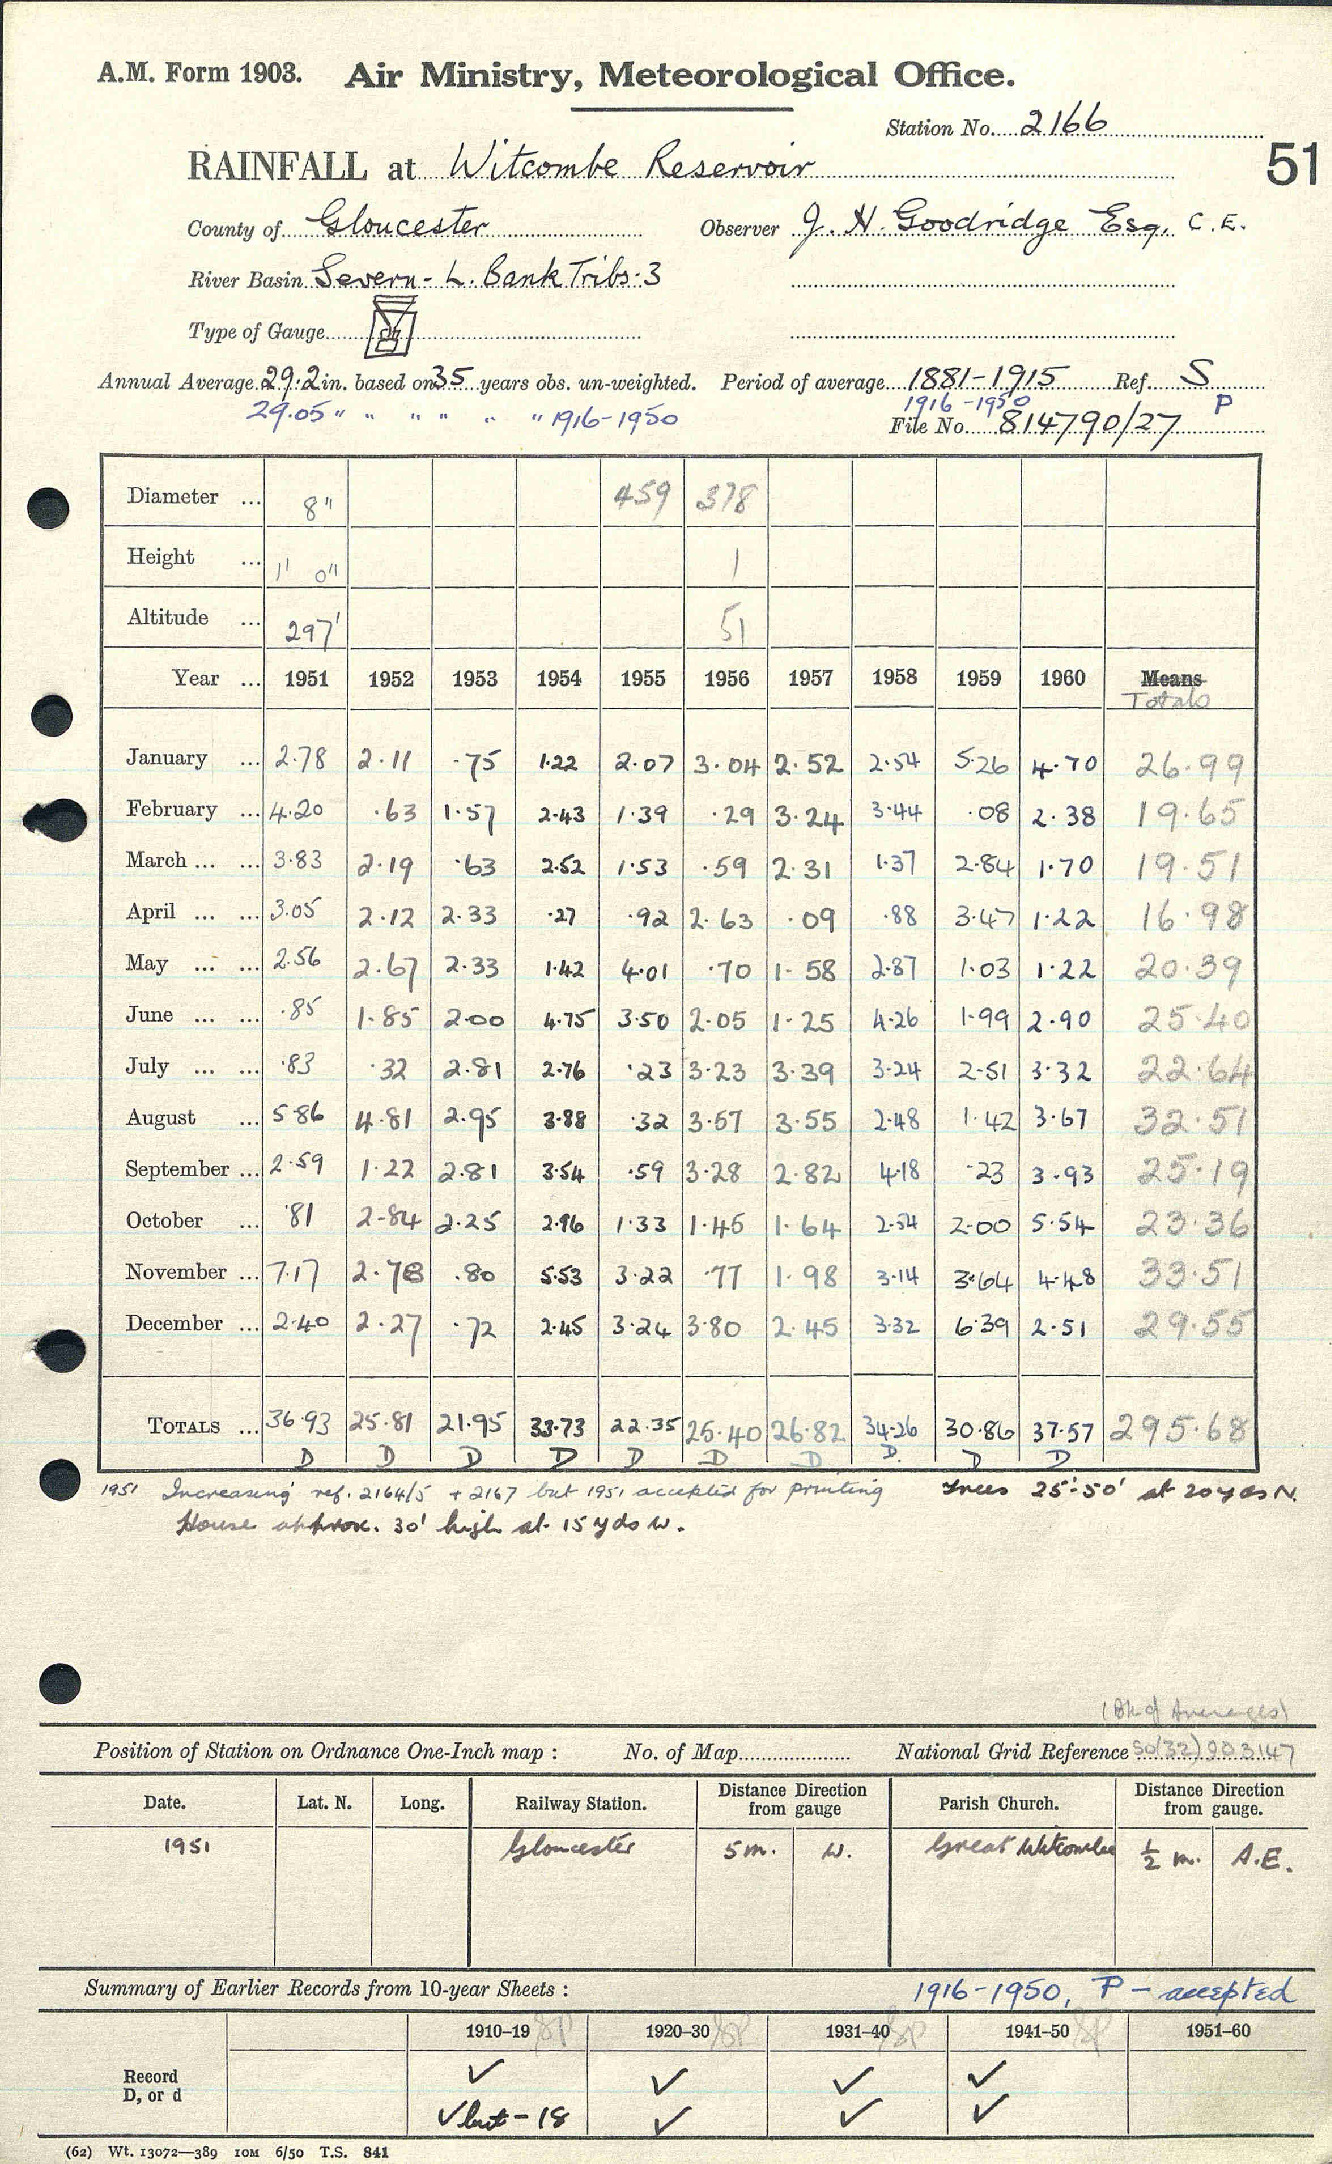 A.M. Form 1903. Air Ministry, Meteorological Office.
Station No. 2166
51
RAINFALL at Witcombe Reservoir
County of Gloucester Observer J. H. Goodridge Esq. C.E.
River Basin Severn - L. Bank Tribs. 3
Type of Gauge
Annual Average 29.2 in. based on 35 years obs. un-weighted. Period of average 1881-1915 Ref. S
29.05 " " " " " " 1916-1950 1916-1950 P
File No. 814790/27
Diameter ... 8" 459 378
Height ... 1' 0" 1
Altitude ... 297' 51
Year ... 1951 1952 1953 1954 1955 1956 1957 1958 1959 1960 Means
Totals
January ... 2.78 2.11 .75 1.22 2.07 3.04 2.52 2.54 5.26 4.70 26.99
February ... 4.20 .63 1.57 2.43 1.39 .29 3.24 3.44 .08 2.38 19.65
March ... ... 3.83 2.19 .63 2.52 1.53 .59 2.31 1.37 2.84 1.70 19.51
April ... ... 3.05 2.12 2.33 .27 .92 2.63 .09 .88 3.47 1.22 16.98
May ... ... 2.56 2.67 2.33 1.42 4.01 .70 1.58 2.87 1.03 1.22 20.39
June ... ... .85 1.85 2.00 4.75 3.50 2.05 1.25 4.26 1.99 2.90 25.40
July ... ... .83 .32 2.81 2.76 .23 3.23 3.39 3.24 2.51 3.32 22.64
August ... 5.86 4.81 2.95 3.88 .32 3.57 3.55 2.48 1.42 3.67 32.51
September ... 2.59 1.22 2.81 3.54 .59 3.28 2.82 4.18 .23 3.93 25.19
October ... .81 2.84 2.25 2.96 1.33 1.45 1.64 2.54 2.00 5.54 23.36
November ... 7.17 2.78 .80 5.53 3.22 .77 1.98 3.14 3.64 4.48 33.51
December ... 2.40 2.27 .72 2.45 3.24 3.80 2.45 3.32 6.39 2.51 29.55
TOTALS ... 36.93 25.81 21.95 33.73 22.35 25.40 26.82 34.26 30.86 37.57 295.68
D D D D D D D D. D D
1951 Increasing ref. 2164/5 + 2167 but 1951 accepted for printing Trees 25'-50' at 20 yds N.
House approx. 30' high at 15 yds W.
(Bk of Averages)
Position of Station on Ordnance One-Inch map : No. of Map National Grid Reference SO(32)903147
Date. Lat. N. Long. Railway Station. Distance Direction from gauge Parish Church. Distance Direction from gauge.
1951 Gloucester 5 m. W. Great Witcombe ½ m. A.E.
Summary of Earlier Records from 10-year Sheets : 1916-1950, P - accepted
1910–19 1920–30 1931–40 1941–50 1951–60
Record ✓ ✓ ✓ ✓
D, or d ✓ but - 18 ✓ ✓ ✓
(62) Wt. 13072—389 10M 6/50 T.S. 841